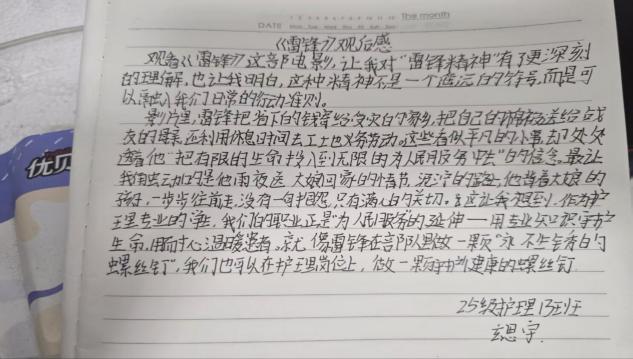 The month
DATE
Mon. Tue. Wed. Thu. Fri. Sat. Sun.
优贝
《雷锋》观后感
观看《雷锋》这部电影,让我对“雷锋精神”有了更深刻
的理解,也让我明白,这种精神不是一个遥远的符号,而是可
以融入我们日常的行动准则。
影片里,雷锋把省下的钱寄给受灾的家乡,把自己的棉被送给战
友的母亲,还利用休息时间去工地义务劳动。这些看似平凡的小事,却处处
透着他“把有限的生命投入到无限的为人民服务中去”的信念。最让
我触动的是他雨夜送大娘回家的情节,泥泞的路上,他背着大娘的
孩子,一步步往前走,没有一句抱怨,只有满心的关切。这让我想到,作为护
理专业的学生,我们的职业正是“为人民服务”的延伸——用专业知识守护
生命,用耐心温暖患者。就像雷锋在部队里做一颗“永不生锈的
螺丝钉”,我们也可以在护理岗位上,做一颗守护健康的螺丝钉.
25级护理13班
宇